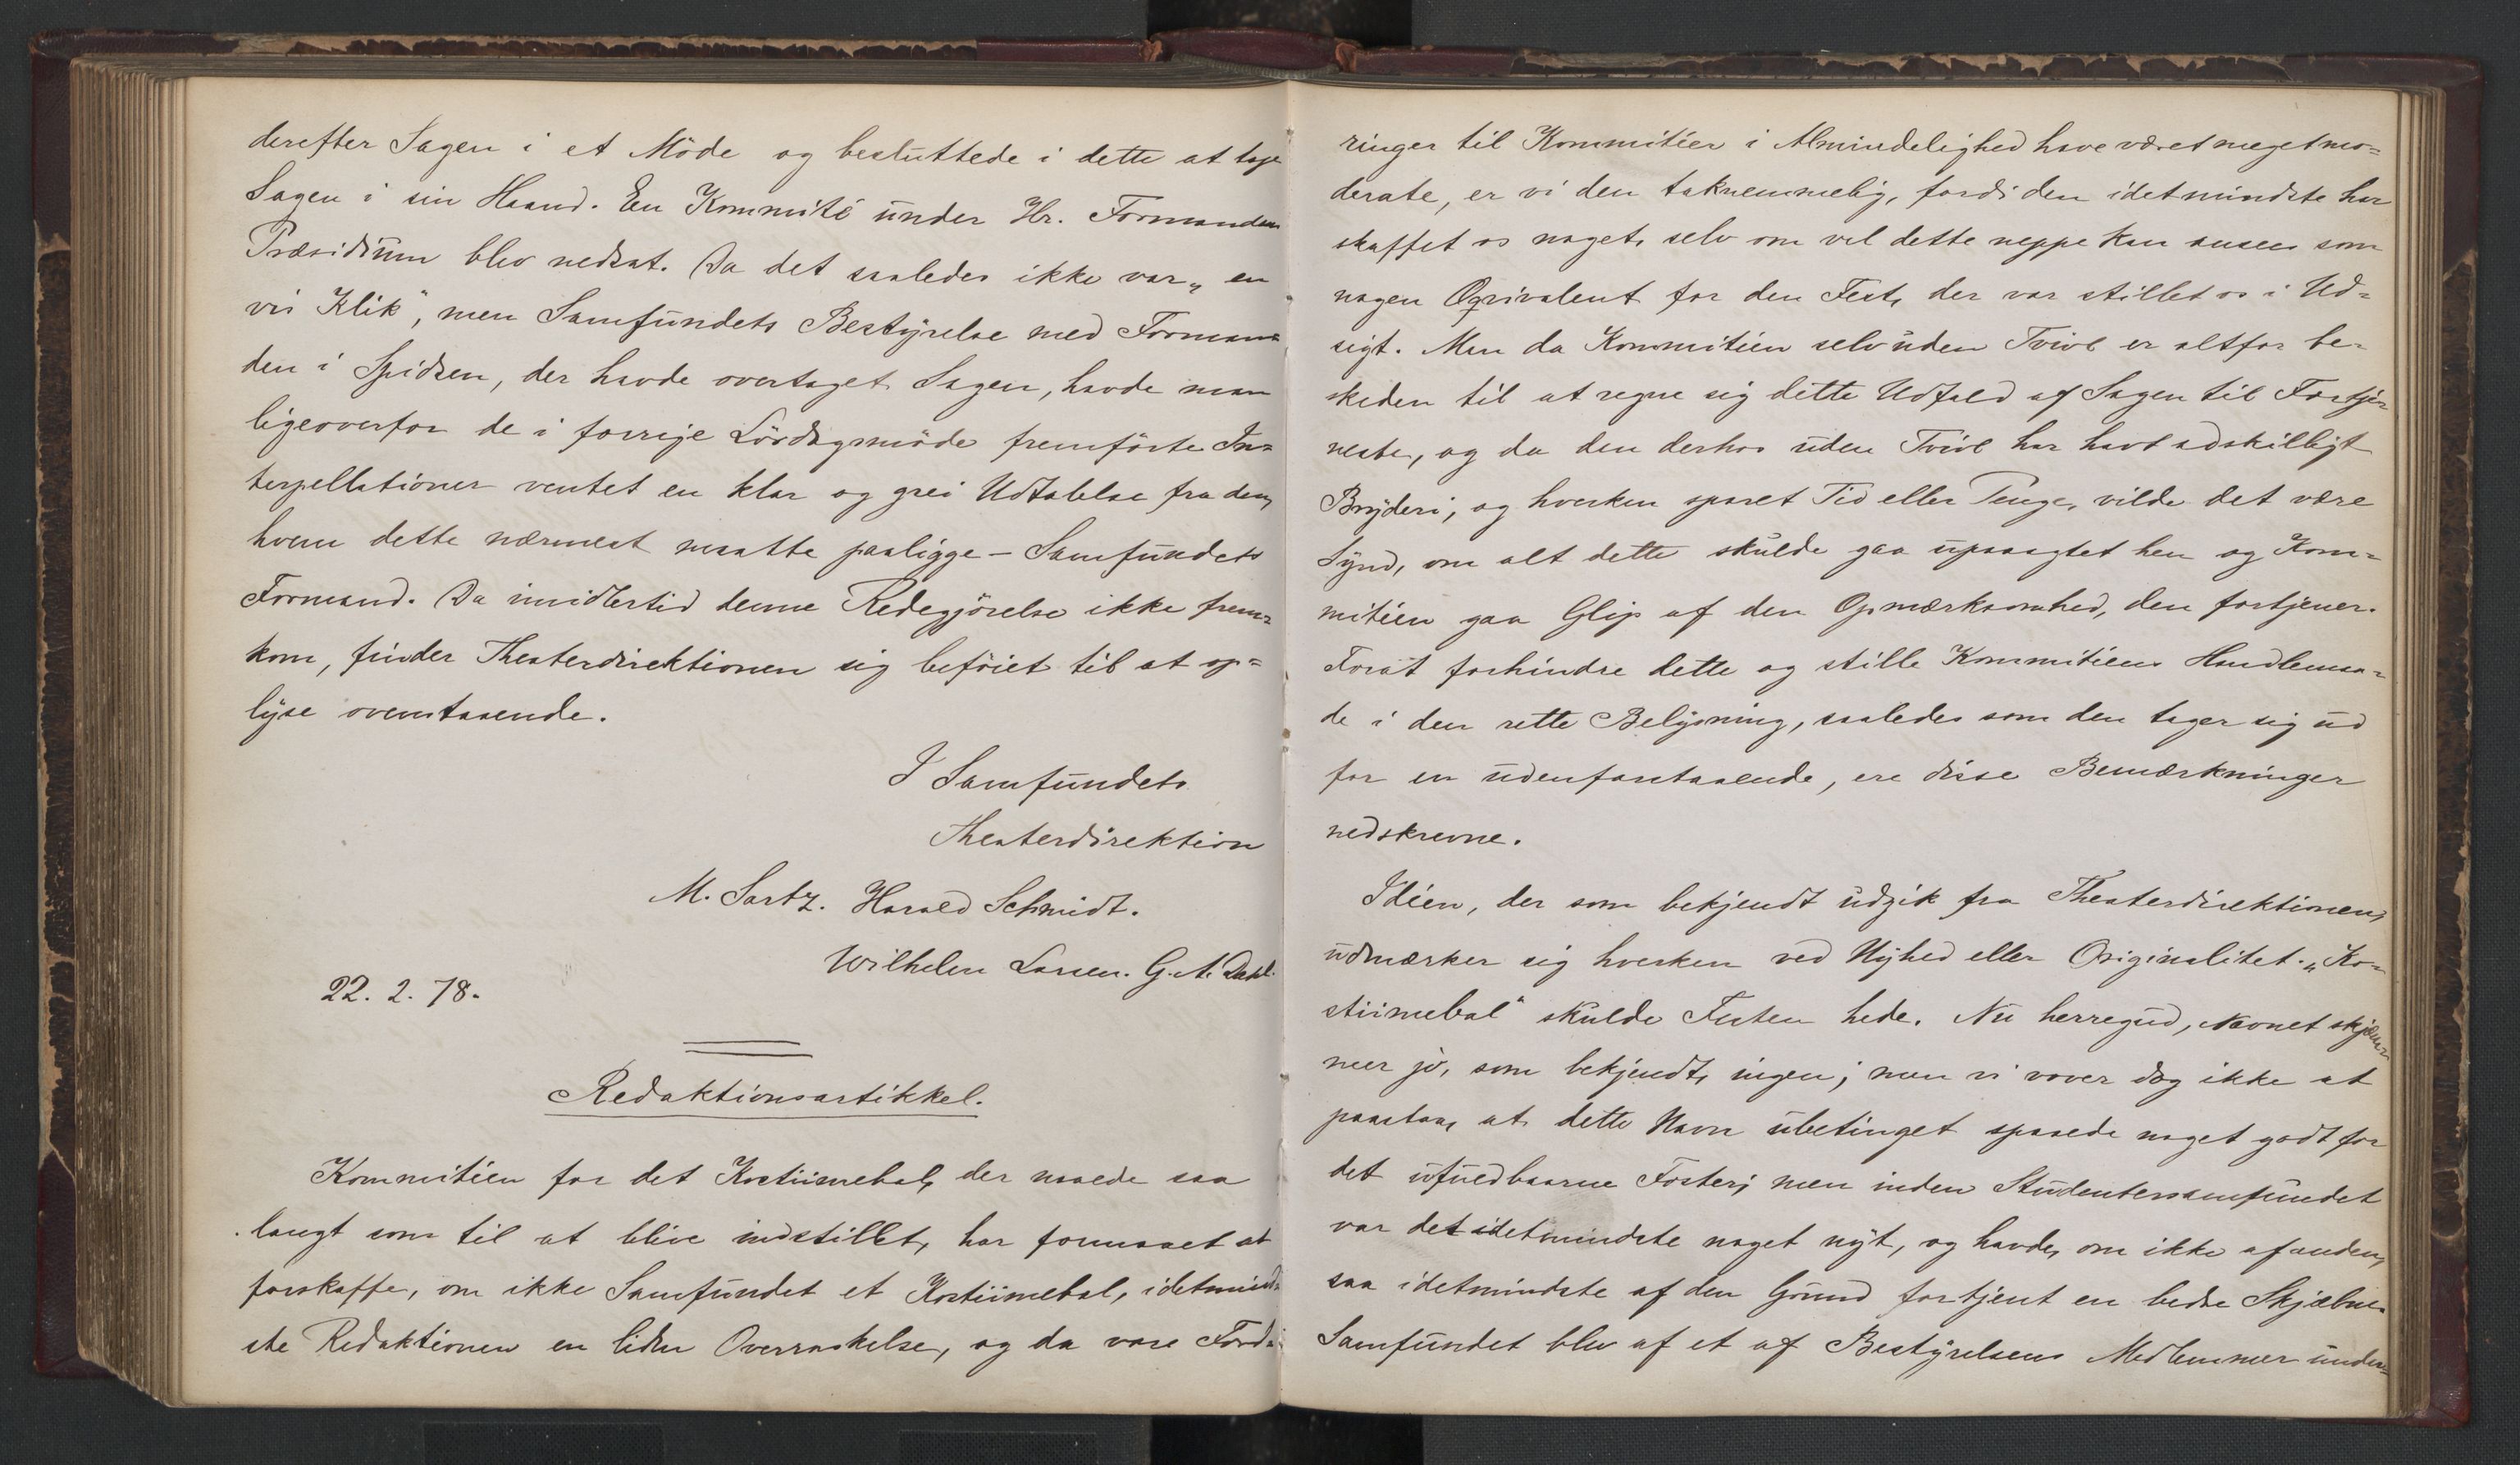 derefter Sagen i et Möde og besluttede i dette at tage
Sagen i sin Haand. En Kommité under Hr. Formandens
Præsidium blev nedsat. Da det saaledes ikke var „en
vis Klik", men Samfundets Bestyrelse med Forman-
den i Spidsen, der havde overtaget Sagen, havde man
ligeoverfor de i forrige Lördagsmöde fremförte In-
terpellationer ventet en klar og grei Udtalelse fra den,
hvem dette nærmest maatte paaligge – Samfundets
Formand. Da imidlertid denne Redegjörelse ikke frem-
kom, finder Theaterdirektionen sig beföiet til at op-
lyse ovenstaaende.
I Samfundets
Theaterdirektion
M. Sartz. Harald Schmidt.
Wilhelm Larsen. G. A. Dahl.
22. 2. 78.
Redaktionsartikkel.
Kommitéen for det Kostümebal, der naaede saa
langt som til at blive indstillet, har formaaet at
forskaffe, om ikke Samfundet et Kostümebal, idetmind-
ste Redaktionen en liden Overraskelse, og da vore Fordr-
ringer til Kommitéer i Almindelighed have været meget mo-
derate, er vi den taknemmelig, fordi den idetmindste har
skaffet os noget, selv om vel dette neppe kan ansees som
nogen Æqvivalent for den Fest, der var stillet os i Ud-
sigt. Men da Kommitéen selv uden Tvivl er altfor be-
skeden til at regne sig dette Udfald af Sagen til Fortje-
neste, og da den derhos uden Tvivl har havt adskilligt
Bryderi, og hverken sparet Tid eller Penge, vilde det være
Synd, om alt dette skulde gaa upaaagtet hen og Kom-
mitéen gaa Glip af den Opmærksomhed, den fortjener.
Forat forhindre dette og stille Kommitéens Handlemaa-
de i den rette Belysning, saaledes som den tager sig ud
for en udenforstaaende, ere disse Bemærkninger
nedskrevne.
Idéen, der som bekjendt udgik fra Theaterdirektionen,
udmærker sig hverken ved Nyhed eller Originalitet. „Ko-
stümebal" skulde Festen hede. Nu herregud, Navnet skjæm-
mer jo, som bekjendt, ingen; men vi vover dog ikke at
paastaa, at dette Navn ubetinget spaaede noget godt for
det ufuldbaarne Foster; men inden Studentersamfundet
var det idetmindste noget nyt, og havde, om ikke af anden,
saa idetmindste af den Grund fortjent en bedre Skjæbne.
Samfundet blev af et af Bestyrelsens Medlemmer under-